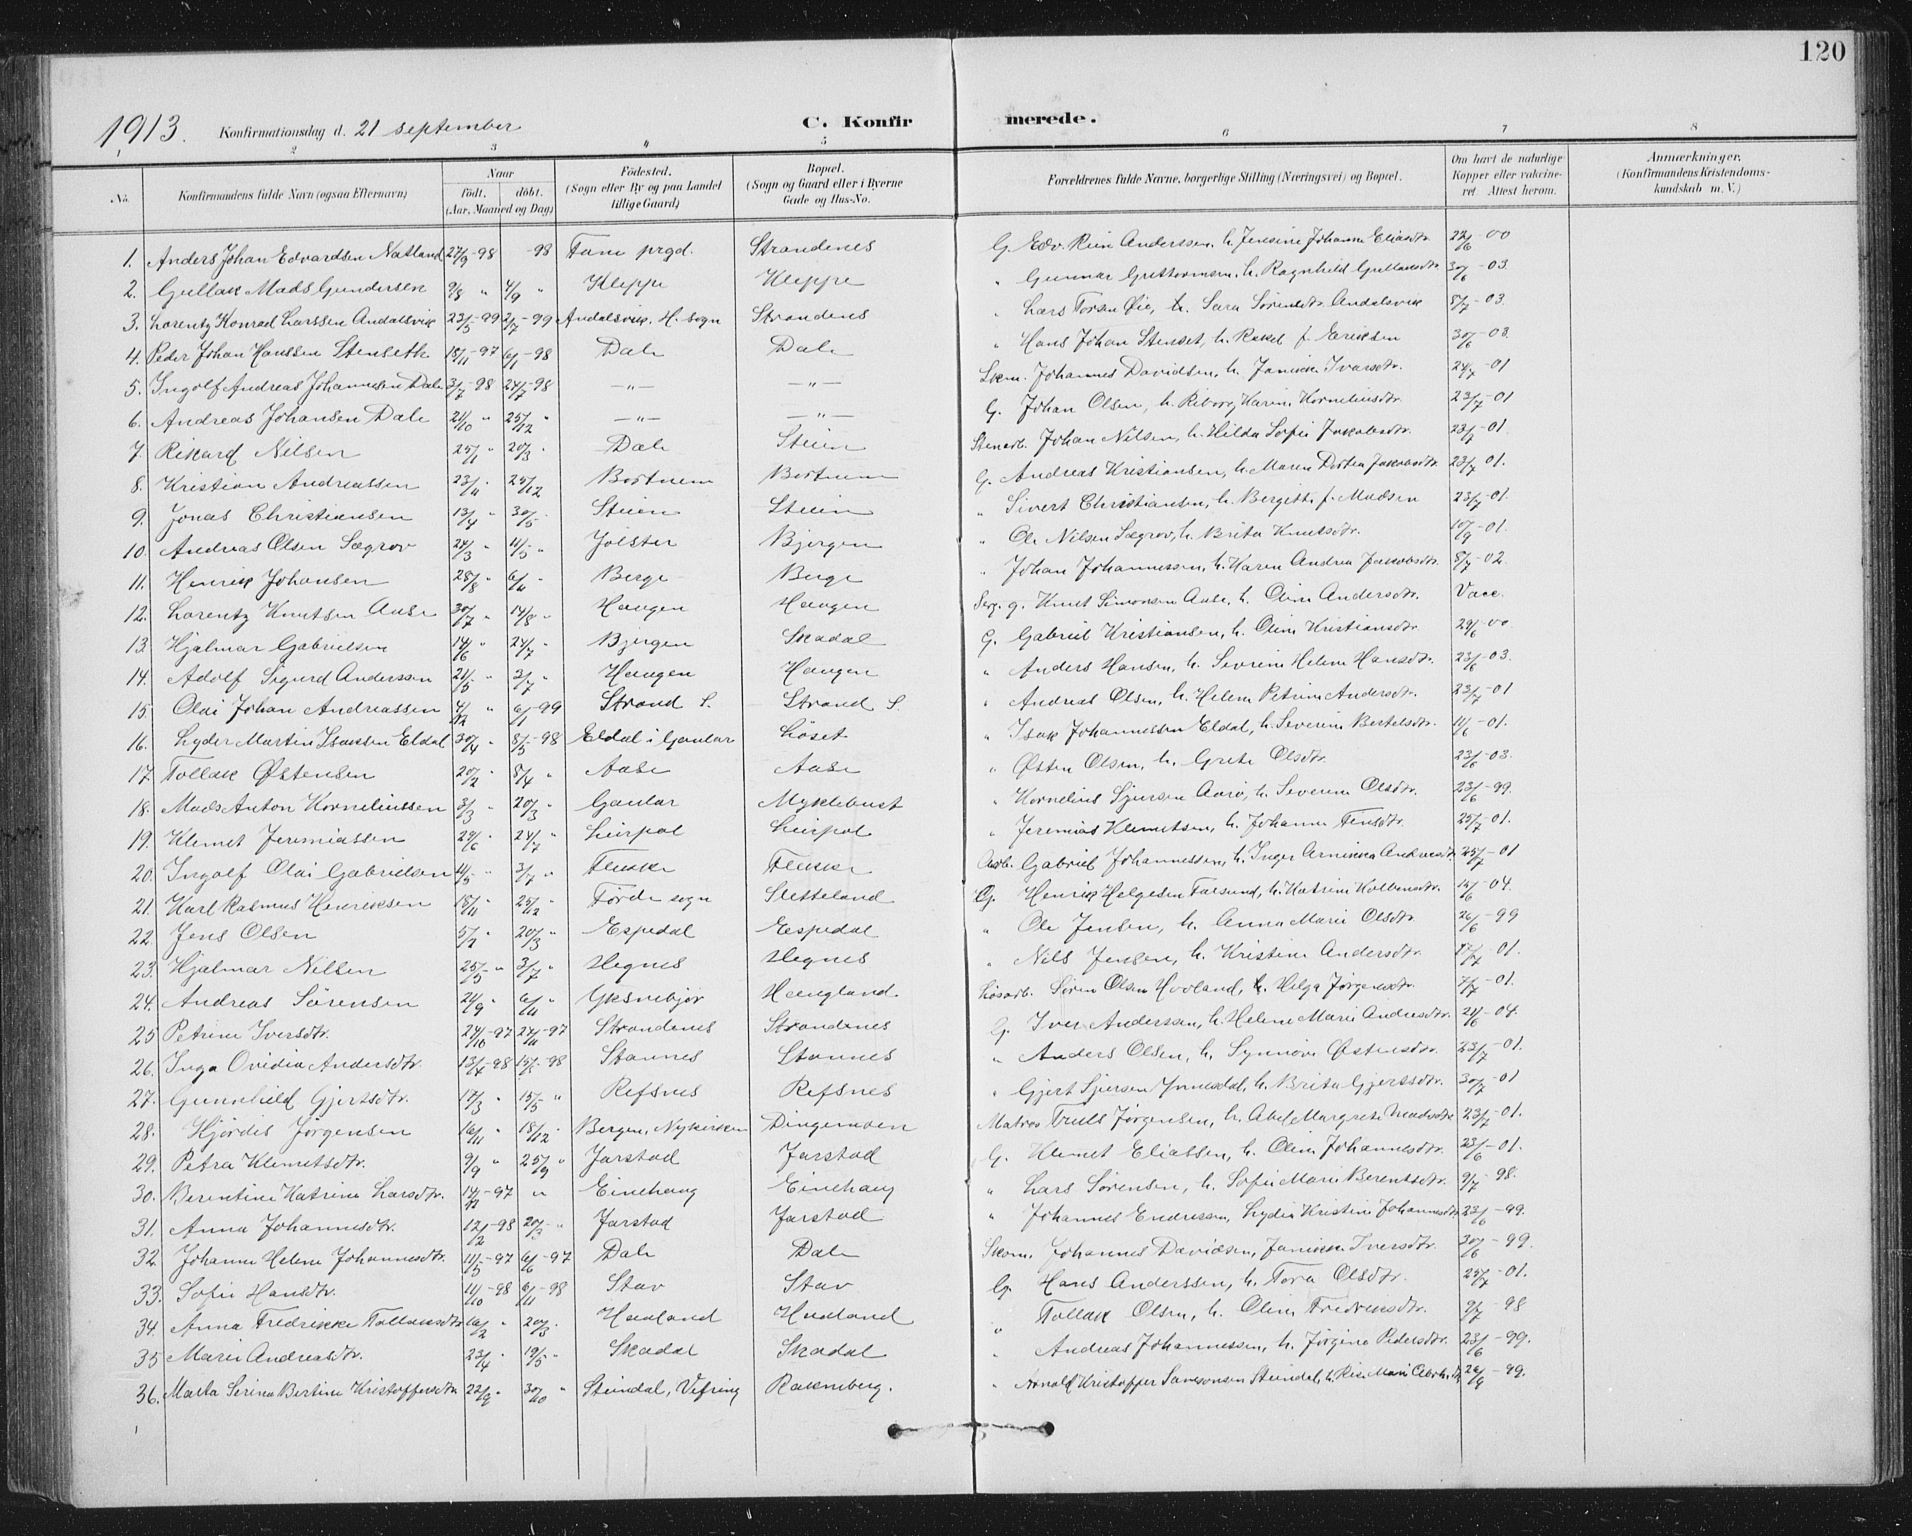 120
1913. Konfirmationsdag d. 21 september C. Konfirmerede.
1 2 3 4 5 6 7 8
No. Konfirmandens fulde Navn (ogsaa Efternavn) Naar født. døbt. (Aar, Maaned og Dag) Fødested. (Sogn eller By og paa Landet tillige Gaard) Bopæl. (Sogn og Gaard eller i Byerne Gade og Hus-No. Forældrenes fulde Navne, borgerlige Stilling (Næringsvei) og Bopæl. Om havt de naturlige Kopper eller vaccineret. Attest herom. Anmærkninger. (Konfirmandens Kristendomskundskab m. V.)
1. Anders Johan Edvardsen Natland 27/9-98 -98 Fane prgd. Strandenes G. Edv. Rein Anderssen, h. Jensine Johanne Eliasdtr. 22/6-00
2. Gullak Mads Gundersen 9/8 " 4/9 " Kleppe Kleppe " Gunnar h. Ragnhild Gullaksdtr 30/6-03.
3. Lorentz Konrad Larssen Andalsvik 23/5-99 2/7-99 Andalsvik, H. sogn Strandens " Lars Torsen Øie, h. Sara Sørensdtr. Andalsvik 8/7-03.
4. Peder Johan Hanssen Stenseth 18/11-97 6/1-98 Dale Dale " Hans Johan Stenset, h. Rakel f. Eriksen 30/6-03.
5. Ingolf Andreas Johannesen Dale 3/7-98 24/7-98 —"— —"— Skm. Johannes Davidsen, h. Janikke Ivarsdtr. 24/7-01
6. Andreas Johansen Dale 21/10 " 25/12 " —"— —"— G. Johan Olsen, h. Riborg Karen Korneliusdtr. 23/7-01
7. Rikard Nilsen 25/1 " 20/3 " Dale Steien Stenarb. Johan Nilsen, h. Hilda Sofie Jakobsdtr. 23/7-01.
8. Kristian Andreassen 23/11 " 25/12 Bortnem Bortnem G. Andreas Kristiansen, h. Maren Dortea Jakobsdtr. 23/7-01.
9. Jonas Christiansen 13/4 " 30/5 Steien Steien " Sivert Christiansen, h. Bergitte f. Madsen 23/7-01.
10. Andreas Olsen Sægrov 24/3 " 11/5 " Jølster Bjergen " Ole Nilsen Sægrov, h. Brita Knutsdtr. 10/9-01.
11. Henrik Johansen 28/8 " 6/11 " Berge Berge " Johan Johannessen, h. Karen Andrea Jakobsdtr. 8/7-02.
12. Lorentz Knutsen Aase 30/7 " 14/8 " Haugen Haugen Serg. g. Knut Simonsen Aase, h. Oline Andersdtr. Vacc.
13. Hjalmar Gabrielsen 14/6 " 24/7 " Bjergen Skadal G. Gabriel Kristiansen, h. Oline Kristiansdtr. 29/6-00.
14. Adolf Sigurd Anderssen 21/5 " 3/7 " Haugen Haugen " Anders Hansen, h. Sevrine Helene Hansdtr. 23/6-03.
15. Olai Johan Andreassen 4/12 " 6/1-99 Strand S. Strand S. " Andreas Olsen, h. Helene Petrine Andersdtr. 23/7-01
16. Lyder Martin Isaksen Eldal 30/4 " 8/5-98 Eldal i Gaular Løset " Isak Johannessen Eldal, h. Severine Bertelsdtr. 11/6-01.
17. Tollak Østensen 20/2 " 8/4 " Aase Aase " Østen Olsen, h. Grete Olsdtr. 23/6-03.
18. Mads Anton Korneliussen 3/3 " 20/3 " Gaular Myklebust " Kornelius Sjursen Aarø, h. Severine Olsdtr. 23/6-99.
19. Klemet Jeremiassen 29/6 " 24/7 " Leirpol Leirpol " Jeremias Klemetsen, h. Johanne Tensdtr. 25/7-01.
20. Ingolf Olai Gabrielsen 11/5 " 3/7 " Flekke Flekke Gabriel Johannessen, h. Inger Arnikka Andreasdtr 25/7-01
21. Karl Rasmus Henriksen 18/11 " 25/12 " Førde sogn Sletteland G. Henrik Helgesen Farsund, h. Katrine Kolbensdtr. 15/6-04.
22. Jens Olsen 5/2 " 20/3 " Espedal Espedal " Ole Jensen, h. Anna Marie Olsdtr. 26/6-99
23. Hjalmar Nilsen 25/5 " 3/7 " Hegnes Hegnes " Nils Jensen, h. Kristine Andersdtr. 17/7-01.
24. Andreas Sørensen 21/9 " 6/11 " Yksnebjør Haugland Løsarb. Søren Olsen Hovland, h. Helga Jørgensdtr. 7/7-01.
25 Petrine Iversdtr. 24/10-97 27/11-97 Strandenes Strandenes G. Iver Anderssen, h. Helene Marie Andreasdtr. 21/6-04.
26. Inga Ovidia Andersdtr. 13/4-98 15/5-98 Stannes Stannes " Anders Olsen, h. Synnøve Østensdtr. 23/7-01.
27. Gunnhild Gjertsdtr. 17/3 " 15/5 " Refsnes Refsnes " Gjert Sjursen Ynnesdal, h. Brita Gjertsdtr. 30/7-01
28. Hjørdis Jørgensen 16/11 " 18/12 " Bergen, Nykirken Dingemoen Matros Truls Jørgensen, h. Abel Margrete 23/7-01.
29. Petra Klemetsdtr. 9/9 " 25/9 " Jarstad Jarstad G. Klemet Eliassen, h. Oline Johannesdtr. 23/7-01.
30. Berentine Katrine Larsdtr. 14/12-97 " Einehaug Einehaug " Lars Sørensen, h. Sofie Marie Berentsdtr. 9/7-98.
31. Anna Johannesdtr. 12/2-98 20/3 " Jarstad Jarstad " Johannes Endressen, Lydia Kristine Johannesdtr. 23/6-99.
32. Johanne Helene Johannesdtr. 11/5-97 6/6-97 Dale Dale Skom. Johannes Davidsen, Janikke Iversdtr. 30/6-99.
33. Sofie Hansdtr. 11/10-98 6/11-98 Stav Stav G. Hans Anderssen, h. Tora Olsdtr. 25/7-01.
34. Anna Fredrikke Tollaksdtr. 16/2 " 20/3 " Hovland Hovland " Tollak Olsen, h. Oline Fredriksdtr. 9/7-98
35 Marie Andreasdtr. 23/4 " 19/5 " Skadal Skadal " Andreas Johannessen, h. Jørgine Pedersdtr. 23/6-99.
36. Marta Serina Bertine Kristoffersdtr. 22/9 " 30/10 " Steindal, Vefring Rakneberg. " Arnold Kristoffer Samsonsen Steindal, h. Marie 26/9-99.